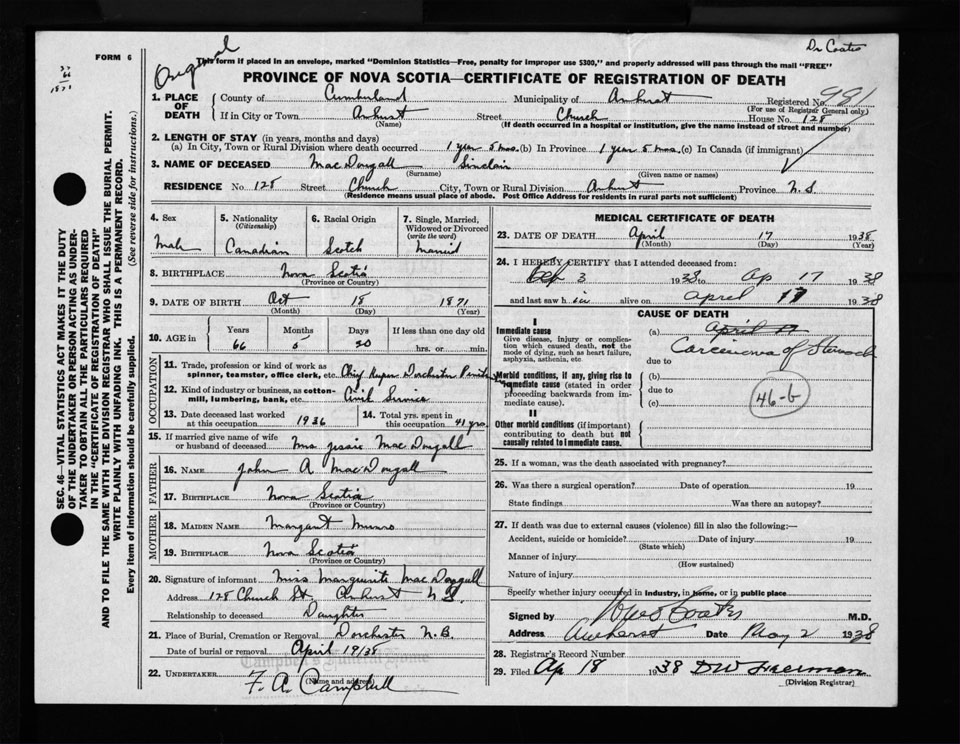 Dr Coates
FORM 6
37
66
1871
Original
This form if placed in an envelope, marked "Dominion Statistics—Free, penalty for improper use $300," and properly addressed will pass through the mail "FREE"
PROVINCE OF NOVA SCOTIA—CERTIFICATE OF REGISTRATION OF DEATH
SEC. 46—VITAL STATISTICS ACT MAKES IT THE DUTY
OF THE UNDERTAKER OR PERSON ACTING AS UNDER-
TAKER TO OBTAIN ALL THE PARTICULARS REQUIRED
IN THE "CERTIFICATE OF REGISTRATION OF DEATH"
AND TO FILE THE SAME WITH THE DIVISION REGISTRAR WHO SHALL ISSUE THE BURIAL PERMIT.
WRITE PLAINLY WITH UNFADING INK. THIS IS A PERMANENT RECORD.
Every item of information should be carefully supplied. (See reverse side for instructions.)
1. PLACE OF DEATH County of Cumberland Municipality of Amherst Registered No. 981
(For use of Registrar General only)
If in City or Town Amherst Street Church House No. 128
(Name) (If death occurred in a hospital or institution, give the name instead of street and number)
2. LENGTH OF STAY (in years, months and days)
(a) In City, Town or Rural Division where death occurred 1 year 5 mos. (b) In Province 1 year 5 mos. (c) In Canada (if immigrant)
3. NAME OF DECEASED MacDougall Sinclair
(Surname) (Given name or names)
RESIDENCE No. 128 Street Church City, Town or Rural Division Amherst Province N.S.
(Residence means usual place of abode. Post Office Address for residents in rural parts not sufficient)
4. Sex 5. Nationality 6. Racial Origin 7. Single, Married,
(Citizenship) Widowed or Divorced
(write the word)
Male Canadian Scotch Married
8. BIRTHPLACE Nova Scotia
(Province or Country)
9. DATE OF BIRTH Oct 18 1871
(Month) (Day) (Year)
10. AGE in Years Months Days If less than one day old
66 5 30 hrs. or min.
OCCUPATION
11. Trade, profession or kind of work as
spinner, teamster, office clerk, etc. Chief Keeper Dorchester
12. Kind of industry or business, as cotton-
mill, lumbering, bank, etc. Civil Service
13. Date deceased last worked 14. Total yrs. spent in
at this occupation 1936 this occupation 41 yrs.
15. If married give name of wife
or husband of deceased Mrs. Jessie MacDougall
FATHER
16. NAME John A MacDougall
17. BIRTHPLACE Nova Scotia
(Province or Country)
MOTHER
18. MAIDEN NAME Margaret Munro
19. BIRTHPLACE Nova Scotia
(Province or Country)
20. Signature of informant Miss Marguerite MacDougall
Address 128 Church St. Amherst N.S.
Relationship to deceased Daughter
21. Place of Burial, Cremation or Removal Dorchester N.B.
Date of burial or removal April 19/38
Campbell's Funeral Home
22. UNDERTAKER F. A. Campbell
(Name and address)
MEDICAL CERTIFICATE OF DEATH
23. DATE OF DEATH April 17 1938
(Month) (Day) (Year)
24. I HEREBY CERTIFY that I attended deceased from:
3 1938 to Ap 17 1938
and last saw h im alive on April 17 1938
CAUSE OF DEATH
I
Immediate cause
Give disease, injury or complica-
tion which caused death, not the
mode of dying, such as heart failure,
asphyxia, asthenia, etc.
(a) April
Carcinoma of Stomach
due to
Morbid conditions, if any, giving rise to
immediate cause (stated in order
proceeding backwards from im-
mediate cause).
(b)
due to
(c)
46-b
II
Other morbid conditions (if important)
contributing to death but not
causally related to immediate cause.
25. If a woman, was the death associated with pregnancy?
26. Was there a surgical operation? Date of operation 19
State findings Was there an autopsy?
27. If death was due to external causes (violence) fill in also the following:—
Accident, suicide or homicide? Date of injury 19
(State which)
Manner of injury
(How sustained)
Nature of injury
Specify whether injury occurred in industry, in home, or in public place
Signed by Coates M.D.
Address Amherst Date May 2 1938
28. Registrar's Record Number
29. Filed Ap 18 1938 DW Freeman
(Division Registrar)